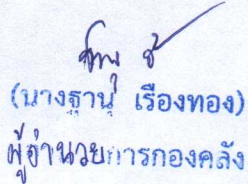 (นางฐานุ เรืองทอง)
ผู้อำนวยการกองคลัง